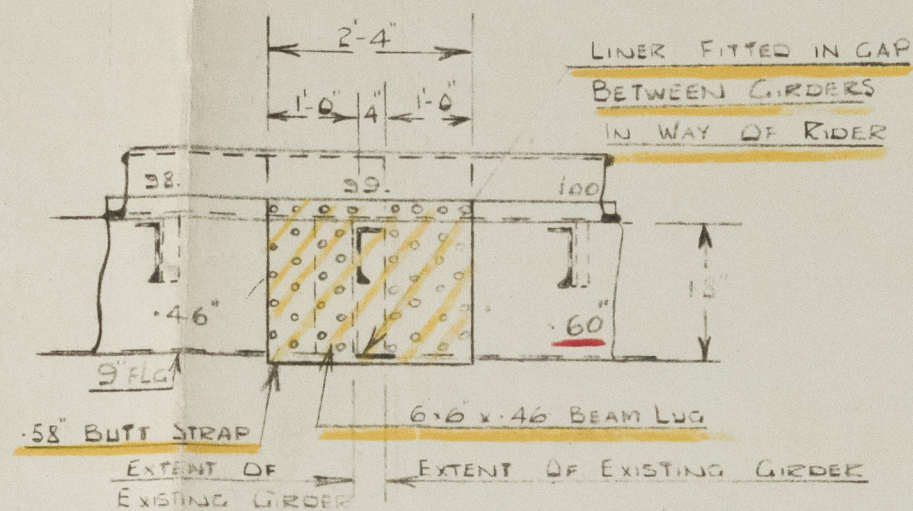 2'-4"
LINER FITTED IN GAP
BETWEEN GIRDERS
IN WAY OF RIDER
1'-0" 4" 1'-0"
98. 99. 100
.46" .60"
9" FLG
.58" BUTT STRAP
6x6" x .46 BEAM LUG
EXTENT OF
EXISTING GIRDER
EXTENT OF EXISTING GIRDER